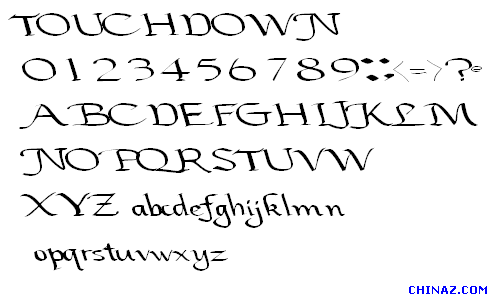 TOUCHDOWN
0123456789:;<=>?@
ABCDEFGHIJKLM
NOPQRSTUVW
XYZ abcdefghijklmn
opqrstuvwxyz
CHINAZ.COM